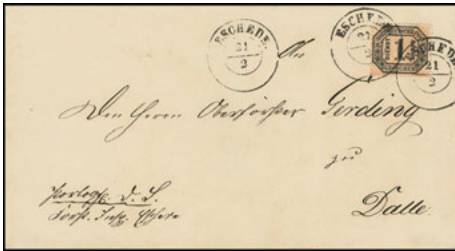 ESCHEDE.
21
2
ESCHEDE.
21
2
1
ESCHEDE.
21
2
An
den Herrn Oberförster Gerding
zu
Dalle.
D. S.
Forst. Insp. Eschede